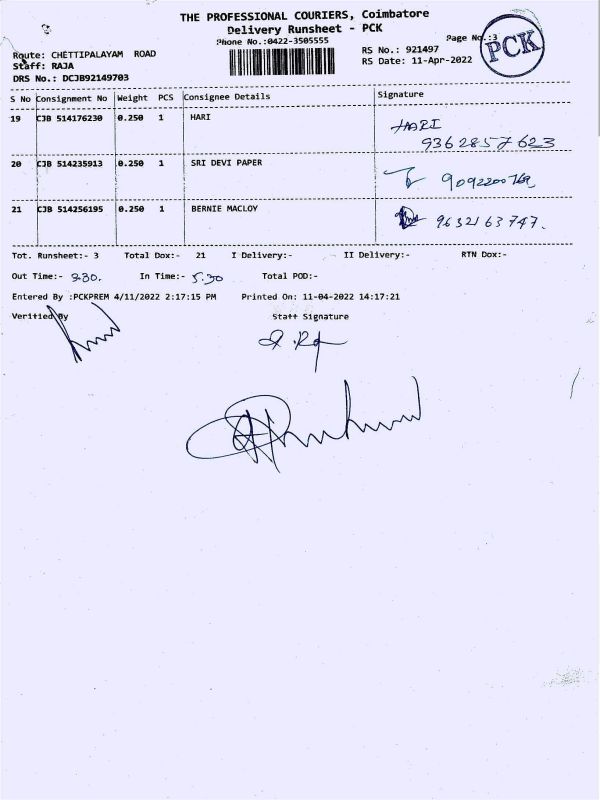 THE PROFESSIONAL COURIERS, Coimbatore
Delivery Runsheet - PCK
Phone No.:0422-3505555
Page No.:3
PCK
Route: CHETTIPALAYAM ROAD
RS No.: 921497
Staff: RAJA
RS Date: 11-Apr-2022
DRS No.: DCJB92149703
S No Consignment No Weight PCS Consignee Details Signature
19 CJB 514176230 0.250 1 HARI HARI
9362857623
20 CJB 514235913 0.250 1 SRI DEVI PAPER
21 CJB 514256195 0.250 1 BERNIE MACLOY 9632163747.
Tot. Runsheet:- 3 Total Dox:- 21 I Delivery:- II Delivery:- RTN Dox:-
Out Time:- 9.30. In Time:- 5.30 Total POD:-
Entered By :PCKPREM 4/11/2022 2:17:15 PM Printed On: 11-04-2022 14:17:21
Verified By Staff Signature